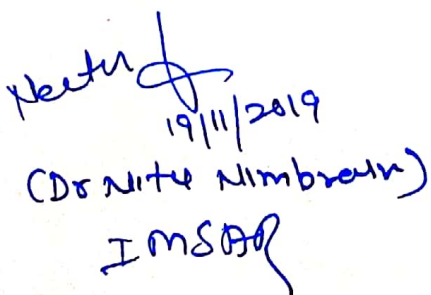 Neetu
19/11/2019
(Dr Nitu Nimbrain)
IMSAR